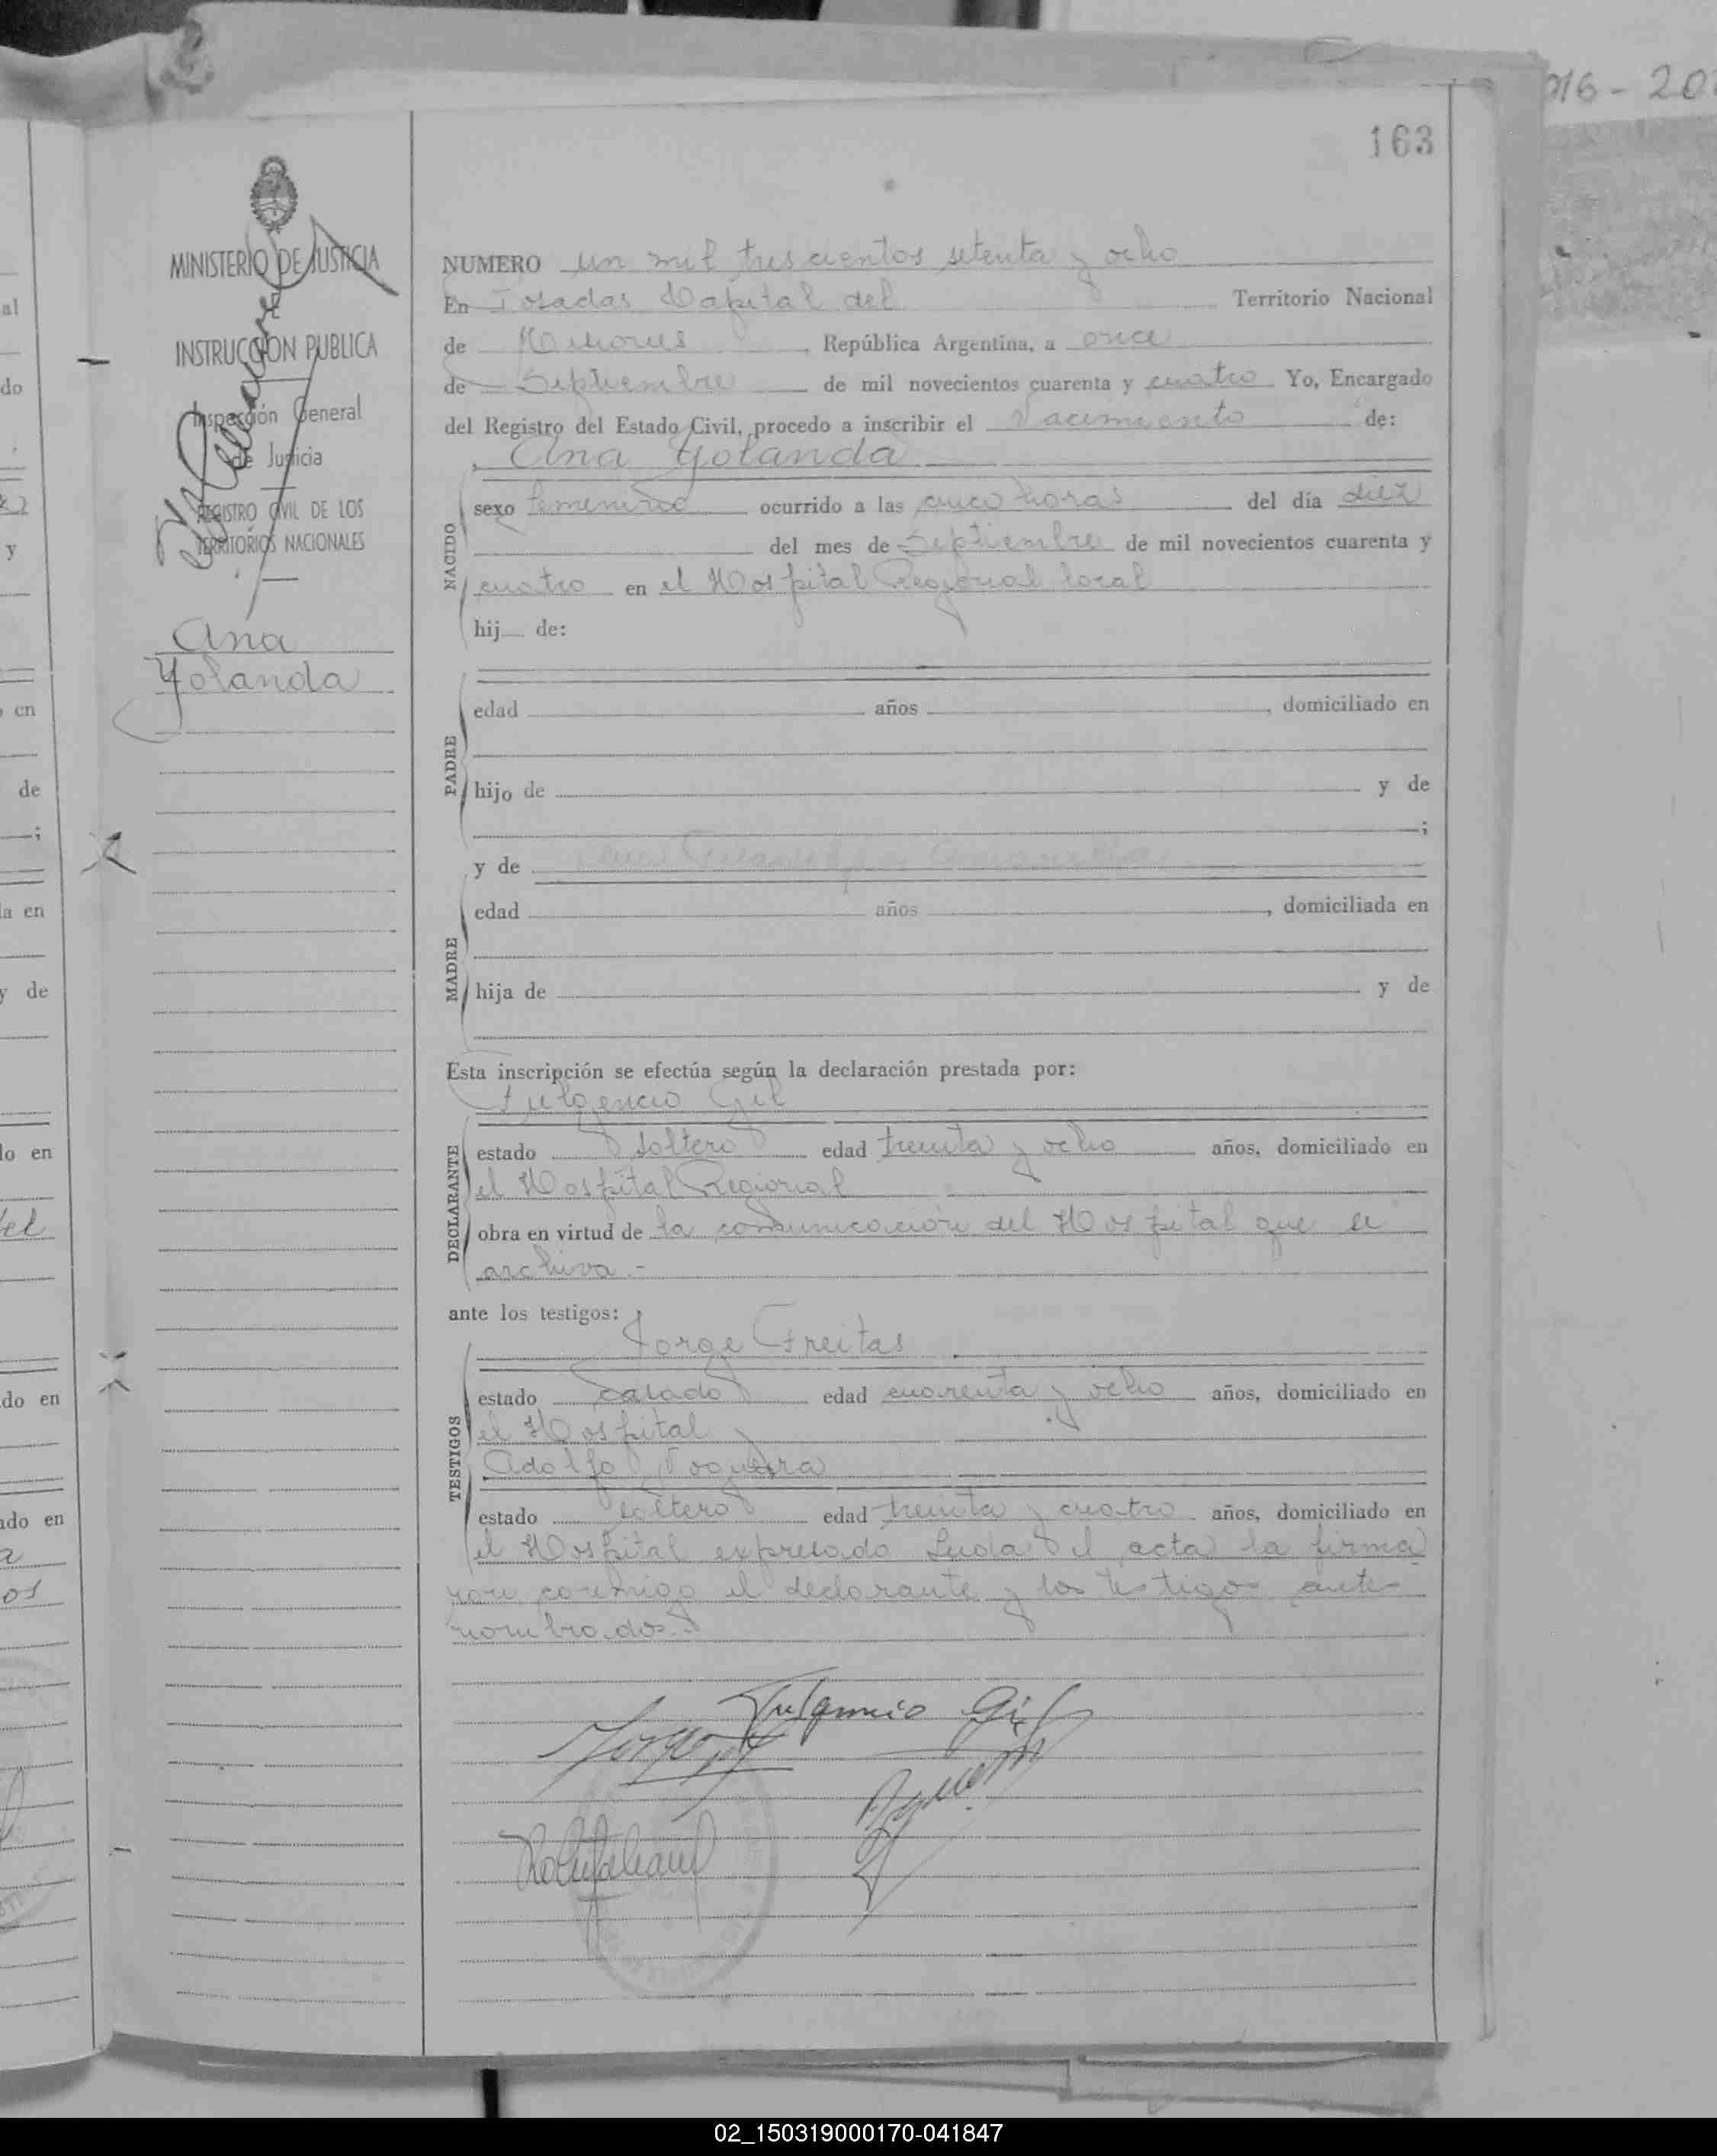 016-20
163
MINISTERIO DE JUSTICIA
INSTRUCCION PUBLICA
Inspección General
de Justicia
REGISTRO CIVIL DE LOS
TERRITORIOS NACIONALES
Ana
Yolanda
NUMERO un mil trescientos setenta y ocho
En Posadas Capital del Territorio Nacional
de Misiones, República Argentina, a once
de Septiembre de mil novecientos cuarenta y cuatro Yo, Encargado
del Registro del Estado Civil, procedo a inscribir el Nacimiento de:
Ana Yolanda
NACIDO
sexo femenino ocurrido a las cinco horas del día diez
del mes de Septiembre de mil novecientos cuarenta y
cuatro en el Hospital Regional local
hij de:
PADRE
edad años, domiciliado en
hijo de y de
;
y de
MADRE
edad años, domiciliada en
hija de y de
Esta inscripción se efectúa según la declaración prestada por:
Fulgencio Gil
DECLARANTE
estado soltero edad treinta y ocho años, domiciliado en
el Hospital Regional
obra en virtud de la comunicación del Hospital que se
archiva.-
ante los testigos:
Jorge Freitas
TESTIGOS
estado casado edad cuarenta y ocho años, domiciliado en
el Hospital y
Adolfo Noguera
estado soltero edad treinta y cuatro años, domiciliado en
el Hospital expresado Leida el acta la firma
ron conmigo el declarante y los testigos ante
nombrados.-
Fulgencio Gil
al
do
y
en
de
;
la en
y de
do en
del
do en
ado en
a
os
02_150319000170-041847